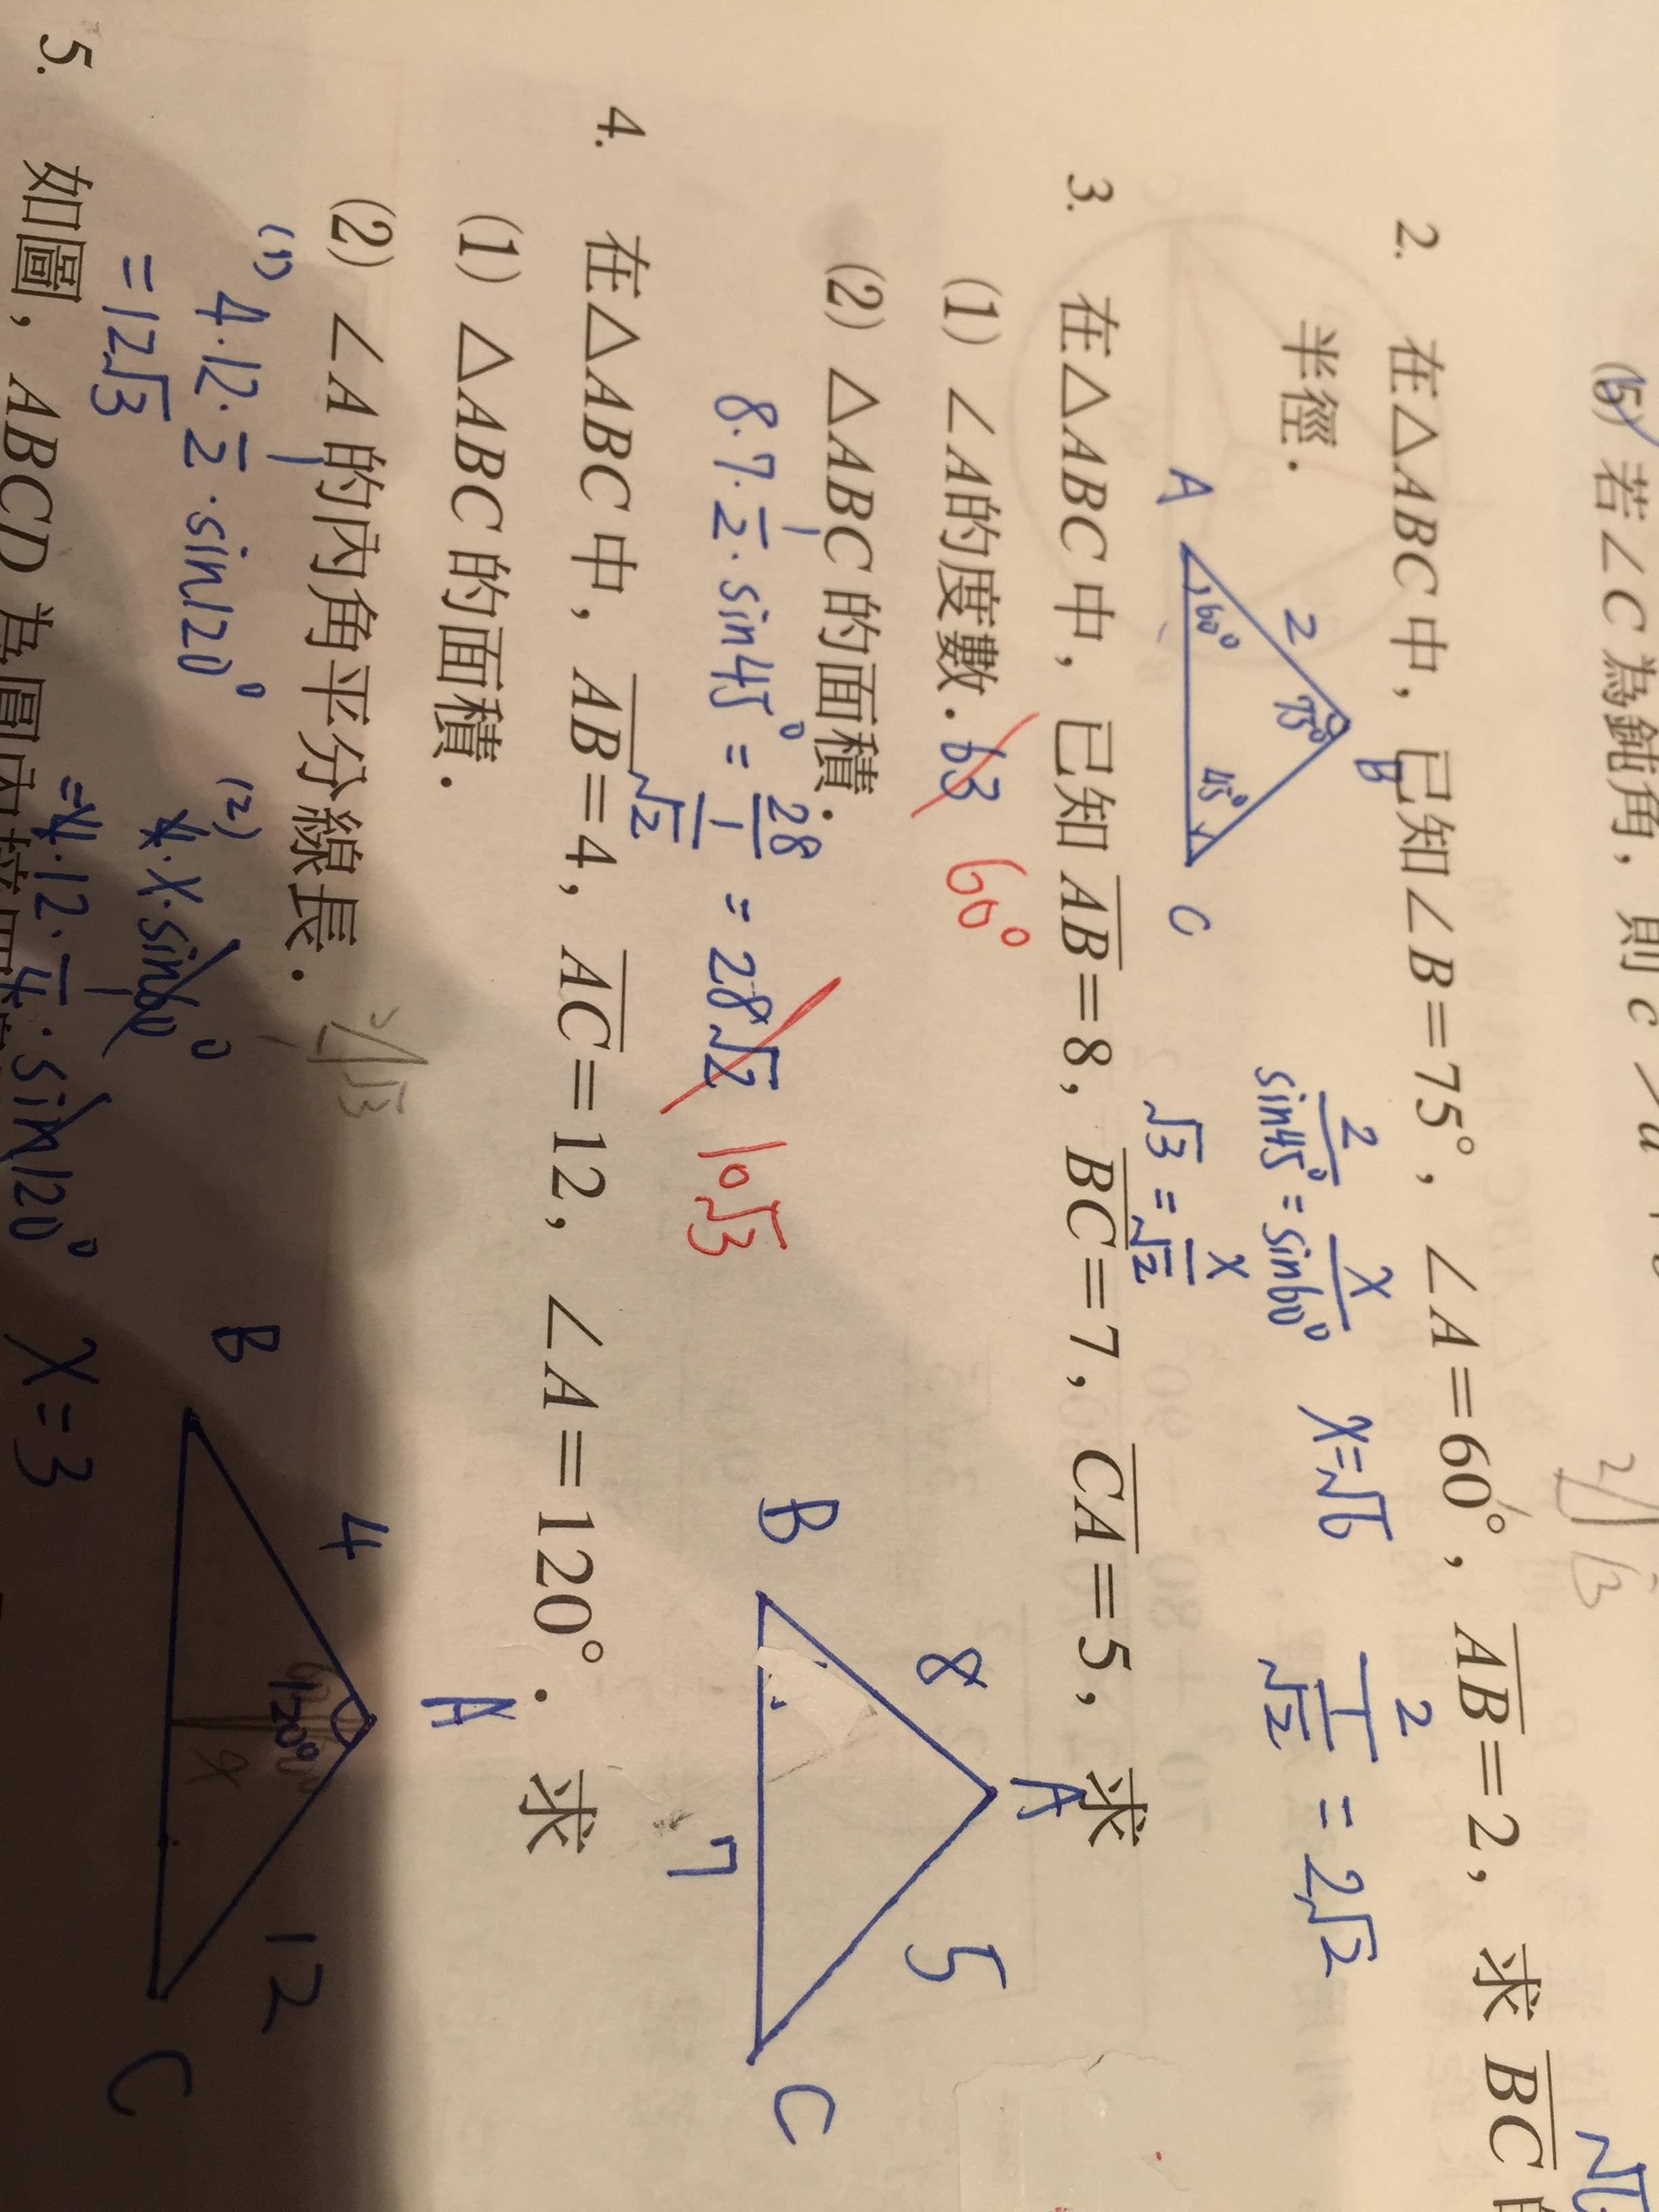 (5) 若∠C 為鈍角，則 c
2√3
2. 在△ABC 中，已知∠B=75°，∠A=60°，AB=2，求 BC
半徑．
A 60° 2 75° B 45° C
2/sin45° = x/sin60°
√3 = x/√2
x=√6
2/(1/√2) = 2√2
3. 在△ABC 中，已知 AB=8，BC=7，CA=5，求
(1) ∠A的度數．63 60°
(2) △ABC 的面積．
8·7·1/2·sin45° = 28/1 √2 = 28√2 10√3
B 8 A 5 C 7
4. 在△ABC 中，AB=4，AC=12，∠A=120°．求
(1) △ABC 的面積．
(2) ∠A 的內角平分線長．
(1) 4·12·1/2·sin120°
=12√3
(2) 4·x·sin60°
=4·12·1/4·sin120°
x=3
B 4 A 120° 12 C x
5. 如圖，ABCD 為圓內接四